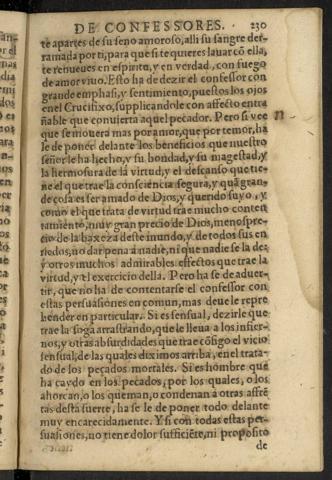 DE CONFESSORES. 230
te apartes de su seno amoroso, alli su sangre der-
ramada por ti, para que si te quieres lauar cõ ella,
te renueues en espiritu, y en verdad, con fuego
de amor viuo. Esto ha de dezir el confessor con
grande emphasi, y sentimiento, puestos los ojos
en el Crucifixo, suplicandole con affecto entra
ñable que conuierta aquel pecador. Pero si vee
que se mouera mas por amor, que por temor, ha
le de poner delante los beneficios que nuestro
señor le ha hecho, y su bondad, y su magestad, y
la hermosura de la virtud, y el descanso que tie-
ne el que trae la consciencia segura, y quã gran-
de cosa es ser amado de Dios, y querido suyo, y
como el que trata de virtud trae mucho conten
tamiento, muy gran precio de Dios, menospre-
cio de la baxeza deste inundo, y de todos sus en
riedos, no dar pena à nadie, ni que nadie se la de,
y otros muchos admirables effectos que trae la
virtud, y el exercicio della. Pero ha se de aduer-
tir, que no ha de contentarse el confessor con
estas persuasiones en comun, mas deue le repre
hender en particular. Si es sensual, dezirle que
trae la soga arrastrando, que le lleua a los infier-
nos, y otras absurdidades que trae cõsigo el vicio
sensual, de las quales diximos arriba, en el trata-
do de los pecados mortales. Si es hombre que
ha caydo en los pecados, por los quales, o los
ahorcan, o los queman, o condenan a otras affrẽ
tas desta suerte, ha se le de poner todo delante
muy encarecidamente. Y si con todas estas per-
suasiones, no tiene dolor sufficiẽte, ni proposito
de